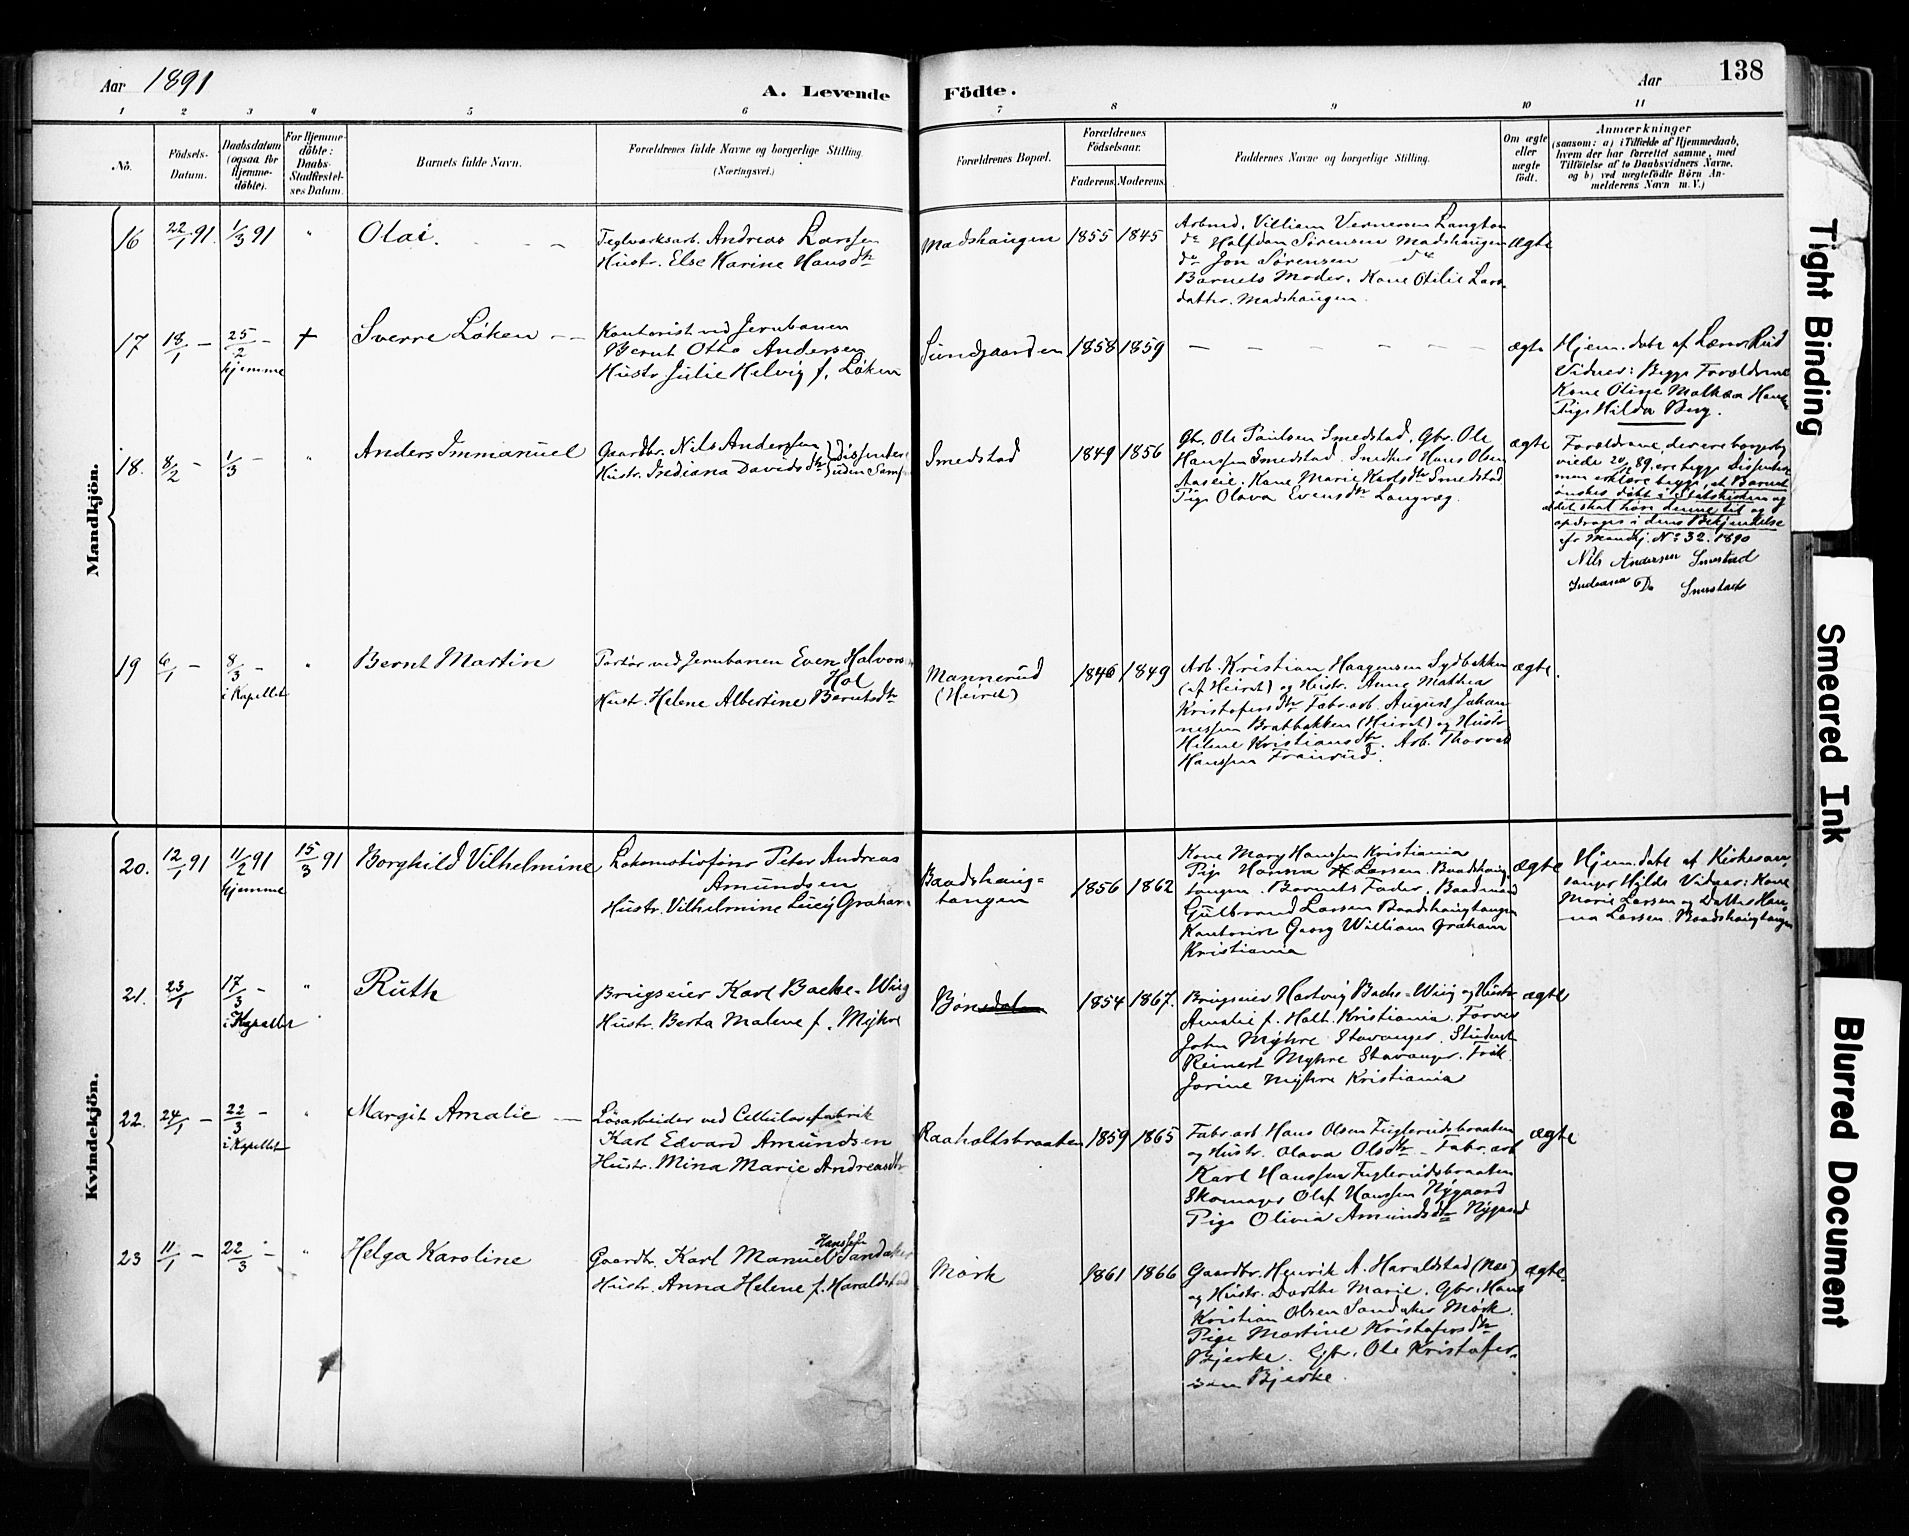 Aar 1891
A. Levende Födte.
Aar
138
1 2 3 4 5 6 7 8 9 10 11
No.
Födsels-
Datum.
Daabsdatum
(ogsaa for
Hjemme-
döbte).
For Hjemme-
döbte:
Daabs-
Stadfæstel-
ses Datum.
Barnets fulde Navn.
Forældrenes fulde Navne og borgerlige Stilling.
(Næringsvei.)
Forældrenes Bopæl.
Forældrenes
Födselsaar.
Faderens. Moderens.
Faddernes Navne og borgerlige Stilling.
Om ægte
eller
uægte
födt.
Anmærkninger
(saasom: a) i Tilfælde af Hjemmedaab,
hvem der har forrettet samme, med
Tilföielse af to Daabsvidners Navne,
og b) ved uægtefödte Börn An-
melderens Navn m. V.)
Mandkjön.
16 22/1 91. 1/3 91 " Olai.
Teglverksarb. Andreas Larsen
Hustr. Else Karine Hansdtr
Madshaugen 1855 1845
Arbmd. Villiam Vernersen Langton
do Halfdan Sørensen Madshaugen
do Jon Sørensen do
Barnets Moder. Kone Otilie Lars-
datter. Madshaugen.
ægte
17 18/1 - 25/2 - hjemme + Sverre Løken
Kontorist ved Jernbanen
Bernt Otto Andersen
Hustr. Julie Helvig f. Løken
Sundgaarden 1858 1859
ægte
Hjem. døbt af Lærer Rud
Vidner: Begge Forældrene
Kone Oline Mathea Hansen
Pige Hilda Berg.
18. 8/2 - 1/3 - " Anders Immanuel
Gaardbr. Nils Anderssen } Dissenter
Hustr. Indiana Davidsdtr } uden Samf.
Smedstad 1849 1856
Gbr. Ole Paulsen Smedstad. Gbr. Ole
Hanssen Smedstad. Smed Hans Olsen
Aaseie. Kone Marie Karlsdtr Smedstad
Pige Olava Evensdtr Langvæg.
ægte
Forældrene, der ere borgerlig
viede 89, ere begge Dissentere
men erklære begge, at Barnet
ønskes døbt i Statskirken og
at det skal høre denne til og
opdrages i dens Bekjendelse
cfr Mandkj. No 32. 1890
Nils Andersen Smestad
Indeana D. Smestad
19 6/1 - 8/3 - i Kapellet " Bernt Martin
Portør ved Jernbanen Even Halvorsen
Hol
Hustr. Helene Albertine Berntsdtr
Mannerud
(Heiret)
1846 1849
Arb. Kristian Haagensen Sydbakken
(af Heiret) og Hustr. Anne Mathea
Kristofersdtr Fabr.arb. August Johan-
nessen Bratbakken (Heiret) og Hustr
Helene Kristiansdtr. Arb. Thorvald
Hanssen
ægte.
Kvindekjön.
20. 12/1 91 11/2 91 hjemme 15/3 91 Borghild Vilhelmine
Lokomotivfører Peter Andreas
Amundsen
Hustr. Vilhelmine Lucy Graham
Baadshaug-
tangen
1856 1862
Kone Mary Hanssen Kristiania
Pige Hanna Larsen. Baadshaug-
tangen. Barnets Fader. Baadsmand
Gulbrand Larsen Baadshaugtangen
Kontorist Georg William Graham
Kristiania
ægte
Hjem. døbt af Kirkesan-
ger Hylds Vidner: Kone
Marie Larsen og Datter Han-
na Larsen. Baadshaugtangen
21. 23/1 17/3 - i Kapellet " Ruth
Brugseier Karl Bache-Wiig
Hustr. Berta Malene f. Myhre
Bønsdal 1854 1867.
Brugseier Hartvig Bache-Wiig og Hustr
Amalie f. Holt. Kristiania. Farver
John Myhre Stavanger. Student
Reinert Myhre Stavanger. Frøk.
Jorine Myhre Kristiania
ægte
22. 24/1 - 22/3 - i Kapellet " Margit Amalie
Løsarbeider ved Cellulosefabrik
Karl Edvard Amundsen
Hustr. Mina Marie Andreasdtr.
Raaholtsbraaten 1859 1865
Fabr.arb Hans Olsen Fuglerudsbraaten
og Hustr. Olava Olsdtr. Fabr.arb
Karl Hanssen Fuglerudsbraaten
Skomager Olaf Hanssen Nygaard
Pige Olivia Amundsdtr Nygaard
ægte
23 11/1 - 22/3 - " Helga Karoline
Gaardbr. Karl Manuel Hanssen Sandaker
Hustr. Anna Helene f. Haraldstad
Mork 1861 1866
Gaardbr. Henrik A. Haraldstad (Næs)
og Hustr. Dorthe Marie. Gbr. Hans
Kristian Olsen Sandaker Mørk.
Pige Martine Kristofersdtr
Bjerke. Gbr. Ole Kristofer-
sen Bjerke.
ægte
Tight Binding
Smeared Ink
Blurred Document